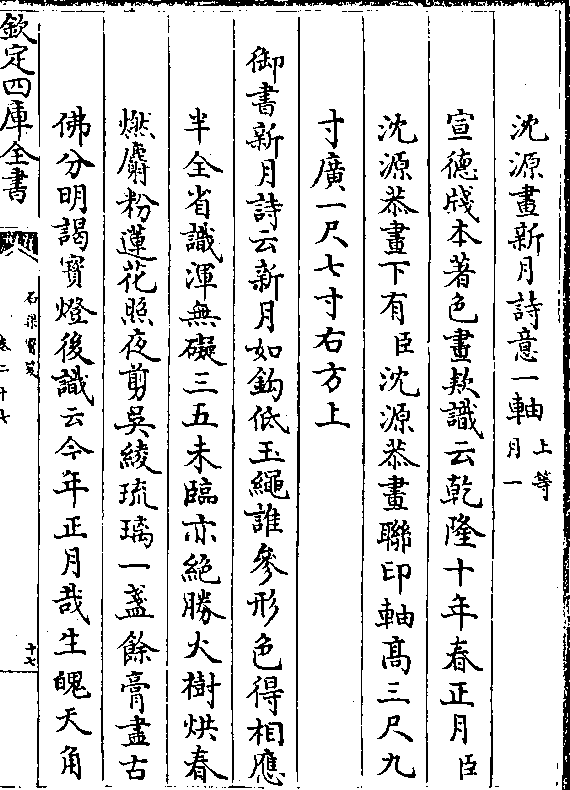 沈源畫新月詩意一軸上等
月一
宣德牋本著色畫欵識云乾隆十年春正月臣
沈源恭畫下有臣沈源恭畫聯印軸髙三尺九
寸廣一尺七寸右方上
御書新月詩云新月如鈎低玉繩誰參形色得相應
半全省識渾無礙三五未臨亦絶勝火樹烘春
燃麝粉蓮花照夜剪吳綾琉璃一盞餘膏盡古
佛分明謁寶燈後識云今年正月哉生魄天角
欽定四庫全書
石渠寳笈
卷二十七
十七